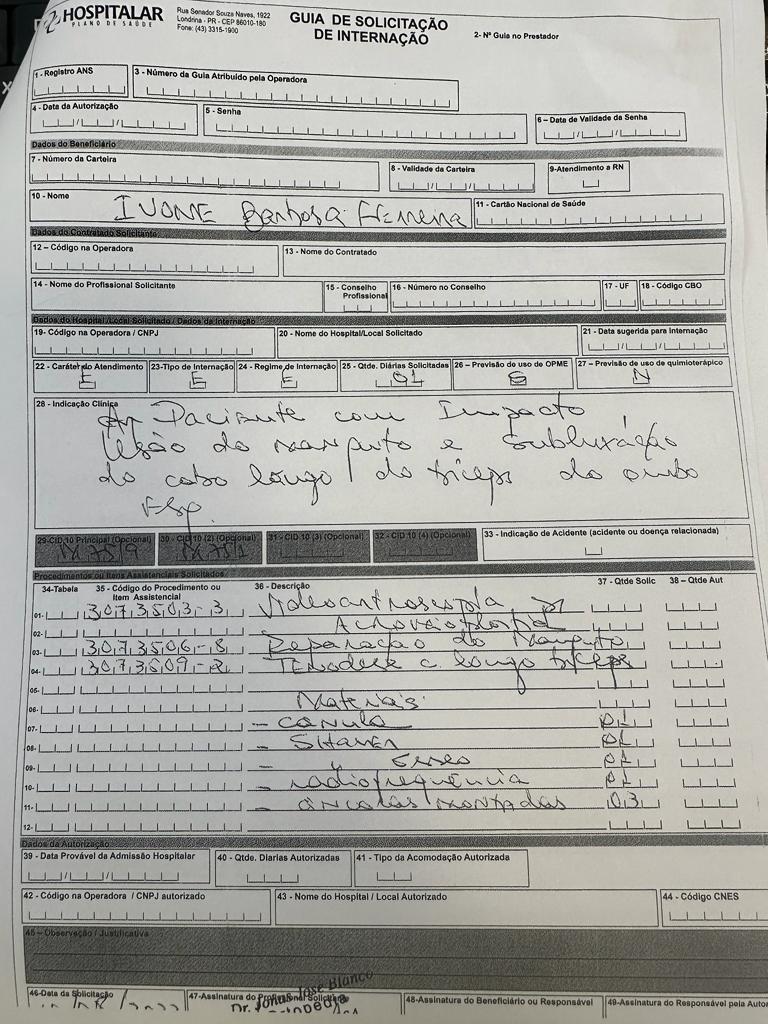 HOSPITALAR
PLANO DE SAÚDE
Rua Senador Souza Naves, 1922
Londrina - PR - CEP 86010-180
Fone: (43) 3315-1900
GUIA DE SOLICITAÇÃO
DE INTERNAÇÃO
2- Nº Guia no Prestador
1 - Registro ANS
3 - Número da Guia Atribuído pela Operadora
4 - Data da Autorização
5 - Senha
6 – Data de Validade da Senha
Dados do Beneficiário
7 - Número da Carteira
8 - Validade da Carteira
9-Atendimento a RN
10 - Nome
IVONE Barbosa Ferreira
11 - Cartão Nacional de Saúde
Dados do Contratado Solicitante
12 – Código na Operadora
13 - Nome do Contratado
14 - Nome do Profissional Solicitante
15 - Conselho Profissional
16 - Número no Conselho
17 - UF
18 - Código CBO
Dados do Hospital /Local Solicitado / Dados da Internação
19- Código na Operadora / CNPJ
20 - Nome do Hospital/Local Solicitado
21 - Data sugerida para Internação
22 - Caráter do Atendimento
E
23-Tipo de Internação
E
24 - Regime de Internação
E
25 - Qtde. Diárias Solicitadas
01
26 – Previsão de uso de OPME
S
27 – Previsão de uso de quimioterápico
N
28 - Indicação Clínica
Paciente com Impacto
lesão do manguito e subluxação
do cabo longo do bíceps do ombro
Esq.
29-CID 10 Principal (Opcional)
M 75 9
30 - CID 10 (2) (Opcional)
M 75 1
31 - CID 10 (3) (Opcional)
32 - CID 10 (4) (Opcional)
33 - Indicação de Acidente (acidente ou doença relacionada)
Procedimentos ou Itens Assistenciais Solicitados
34-Tabela
35 - Código do Procedimento ou Item Assistencial
36 - Descrição
37 - Qtde Solic
38 – Qtde Aut
01- 3073503-3 Videoartroscopia
02- Acromioplastia
03- 3073506-8 Reparação do Manguito
04- 3073509-2 Tenodese c. longo bíceps
05-
06- Materiais
07- - Cânula 01
08- - SHAVER 01
09- - " Ósseo 01
10- - radiofrequência 01
11- - âncoras montadas 03
12-
Dados da Autorização
39 - Data Provável da Admissão Hospitalar
40 - Qtde. Diarias Autorizadas
41 - Tipo da Acomodação Autorizada
42 - Código na Operadora / CNPJ autorizado
43 - Nome do Hospital / Local Autorizado
44 - Código CNES
45 – Observação / Justificativa
46-Data da Solicitação
47-Assinatura do Profissional Solicitante
Dr. Jonas José Blanco
48-Assinatura do Beneficiário ou Responsável
49-Assinatura do Responsável pela Autor